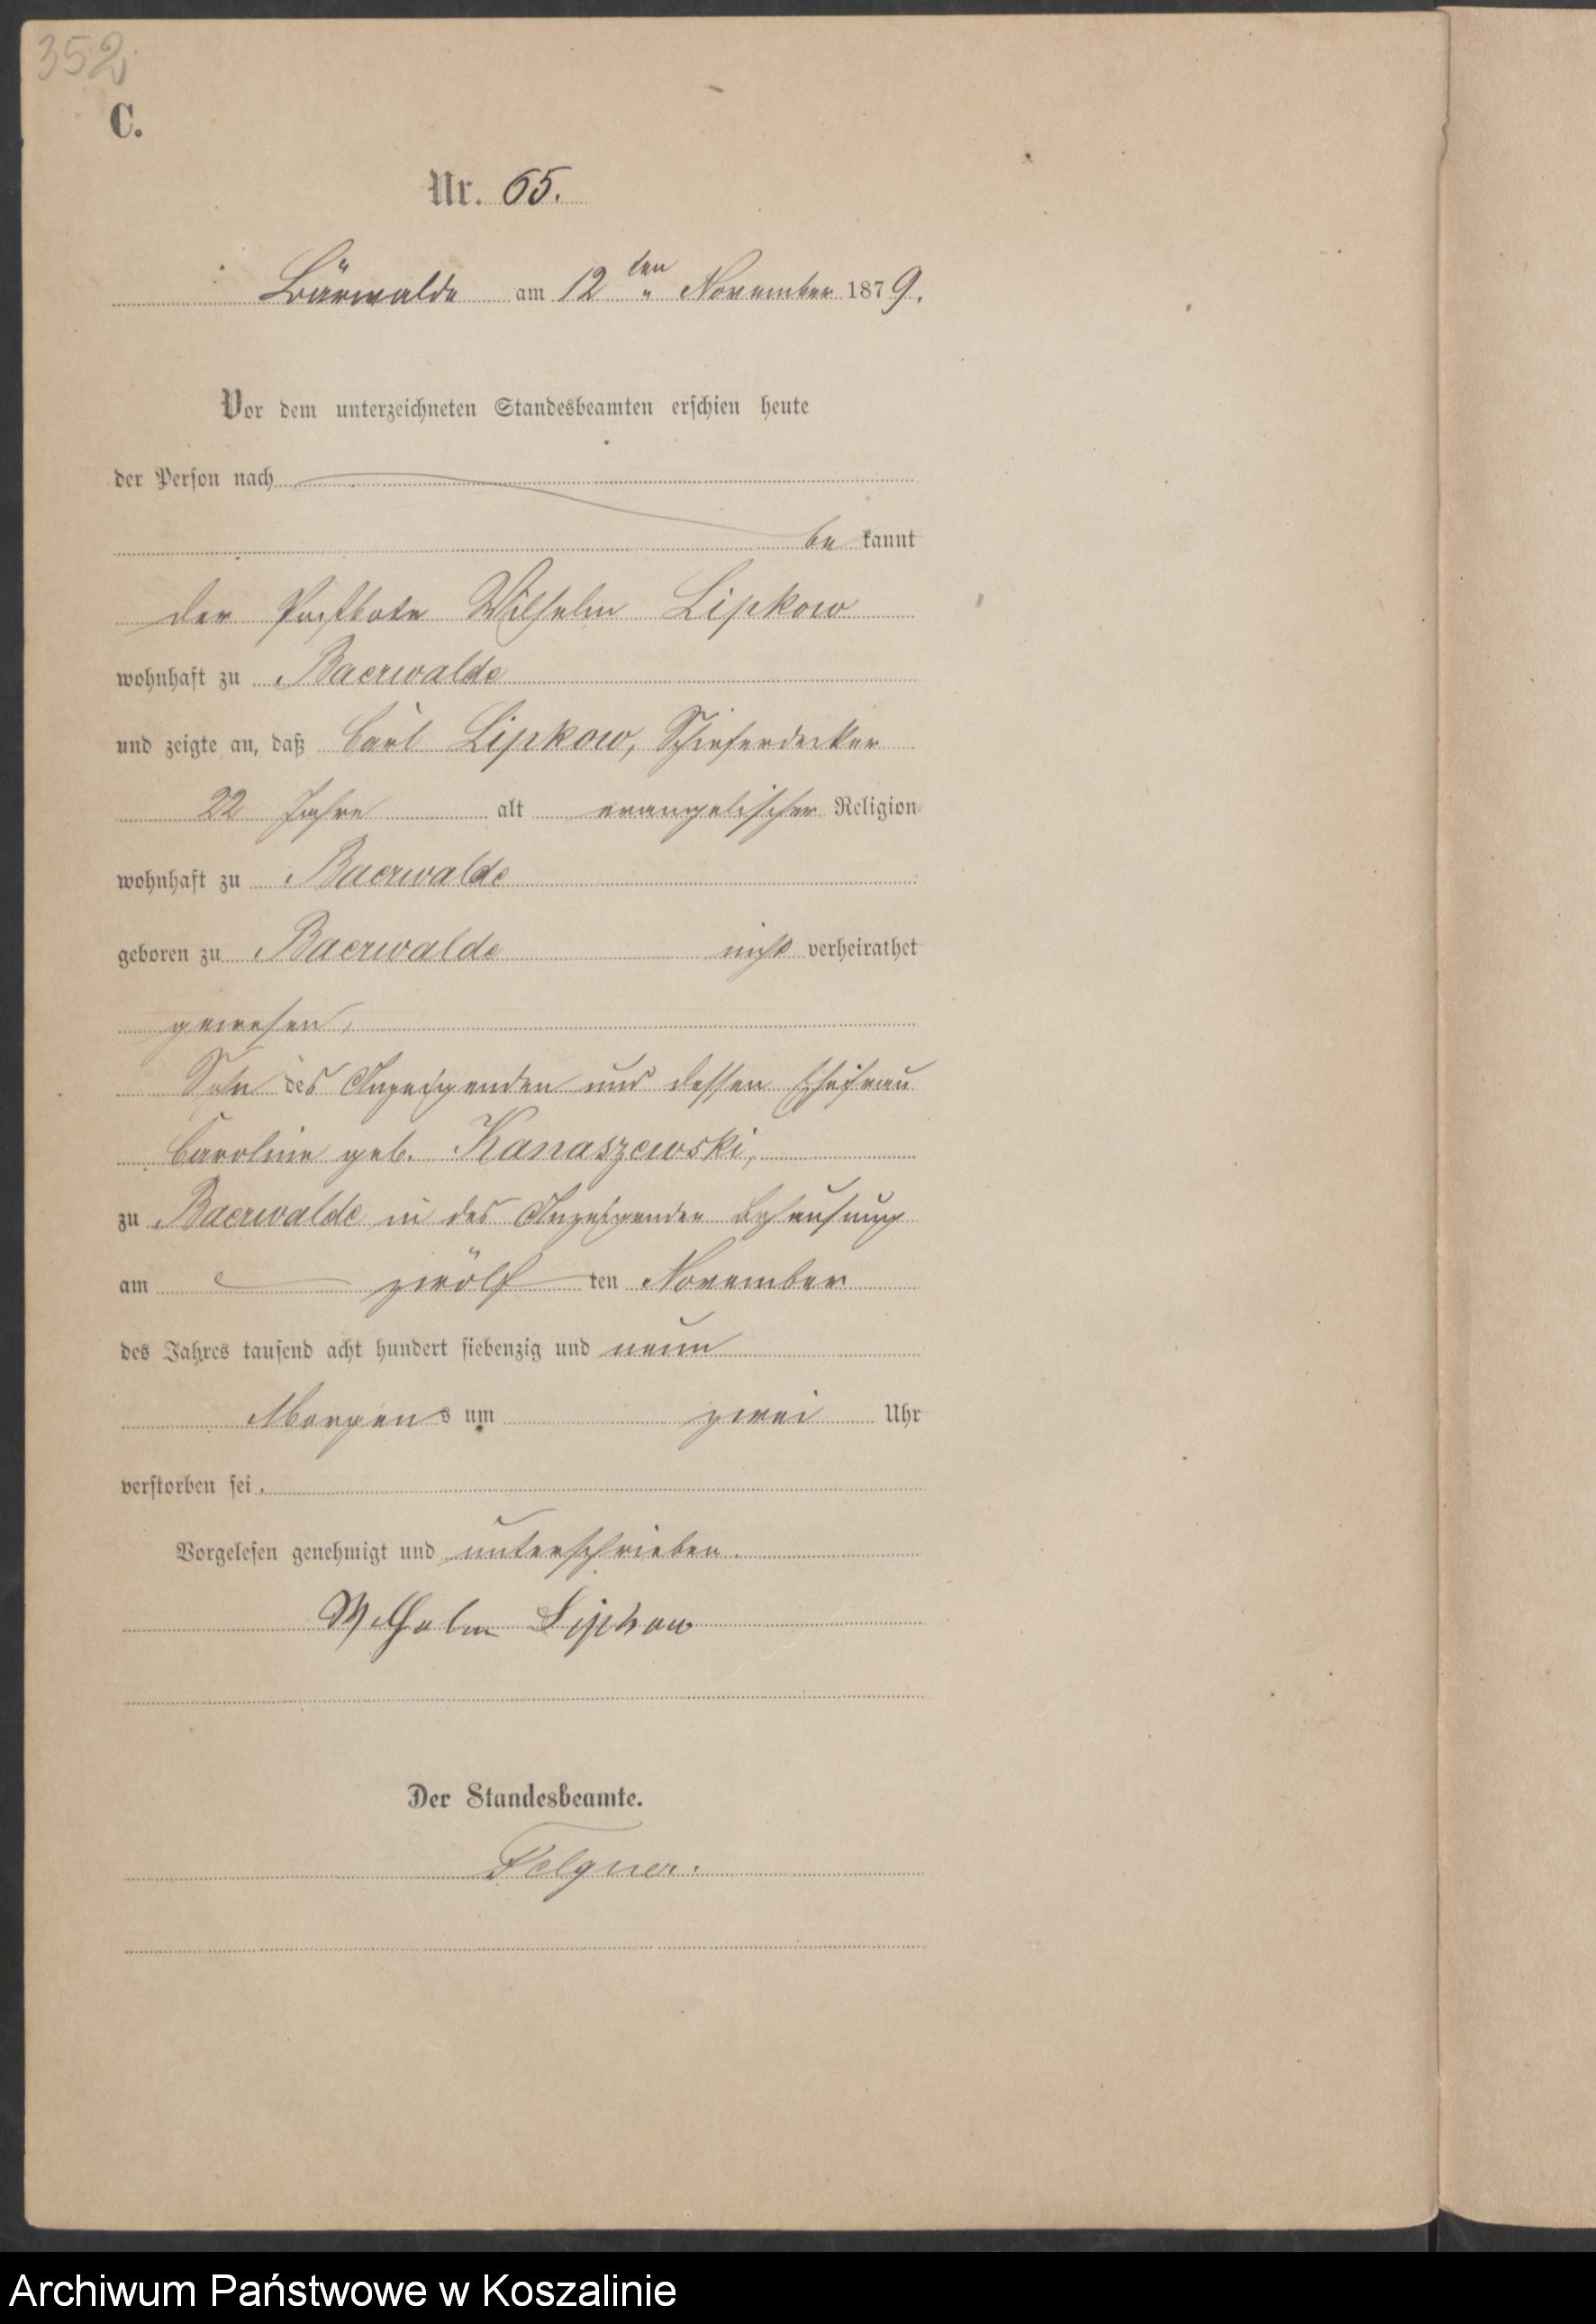 352
C.
Nr. 65.
Bärwalde am 12ten November 1879.
Vor dem unterzeichneten Standesbeamten erschien heute
der Person nach
be kannt
der Postbote Wilhelm Lipkow
wohnhaft zu Baerwalde
und zeigte an, daß Carl Lipkow, Schieferdecker
22 Jahre alt evangelischer Religion
wohnhaft zu Baerwalde
geboren zu Baerwalde nicht verheirathet
gewesen,
Sohn des Anzeigenden und dessen Ehefrau
Caroline geb. Kanaszewski,
zu Baerwalde in des Anzeigenden Behausung
am zwölf ten November
des Jahres tausend acht hundert siebenzig und neun
Morgens um zwei Uhr
verstorben sei.
Vorgelesen genehmigt und unterschrieben.
Wilhelm Lipkow
Der Standesbeamte.
Felgner.
Archiwum Państwowe w Koszalinie